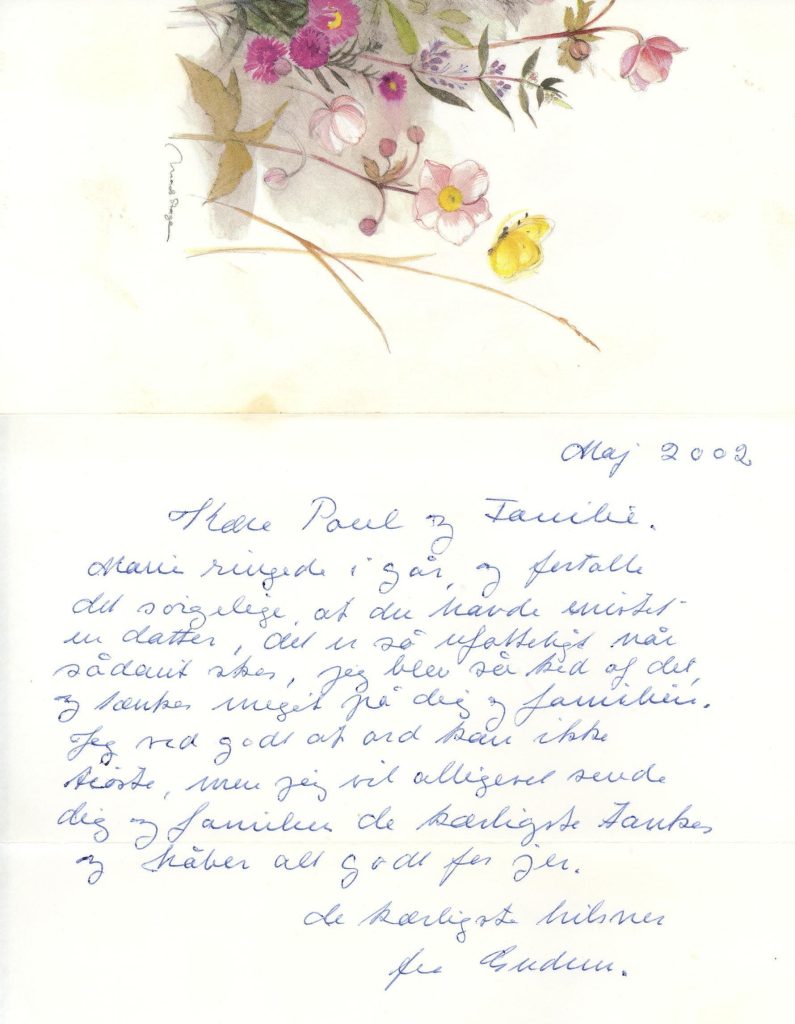 Maj 2002
Kære Poul og Familie.
Marie ringede i går, og fortalte
det sørgelige, at du havde mistet
en datter, det er så ufatteligt når
sådant sker, jeg blev så ked af det,
og tænker meget på dig og familien.
Jeg ved godt at ord kan ikke
trøste, men jeg vil alligevel sende
dig og familien de kærligste tanker
og håber alt godt for jer.
de kærligste hilsner
fra Gudrun.